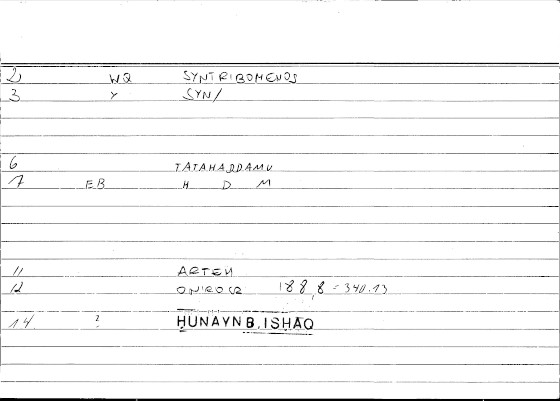 2 WQ SYNTRIBOMENOS
3 Y SYN/
6 TATAHADDAMU
7 EB H D M
11 ARTEM
12 ONIROCR 188,8 = 340.13
14 ? HUNAYN B. ISHAQ